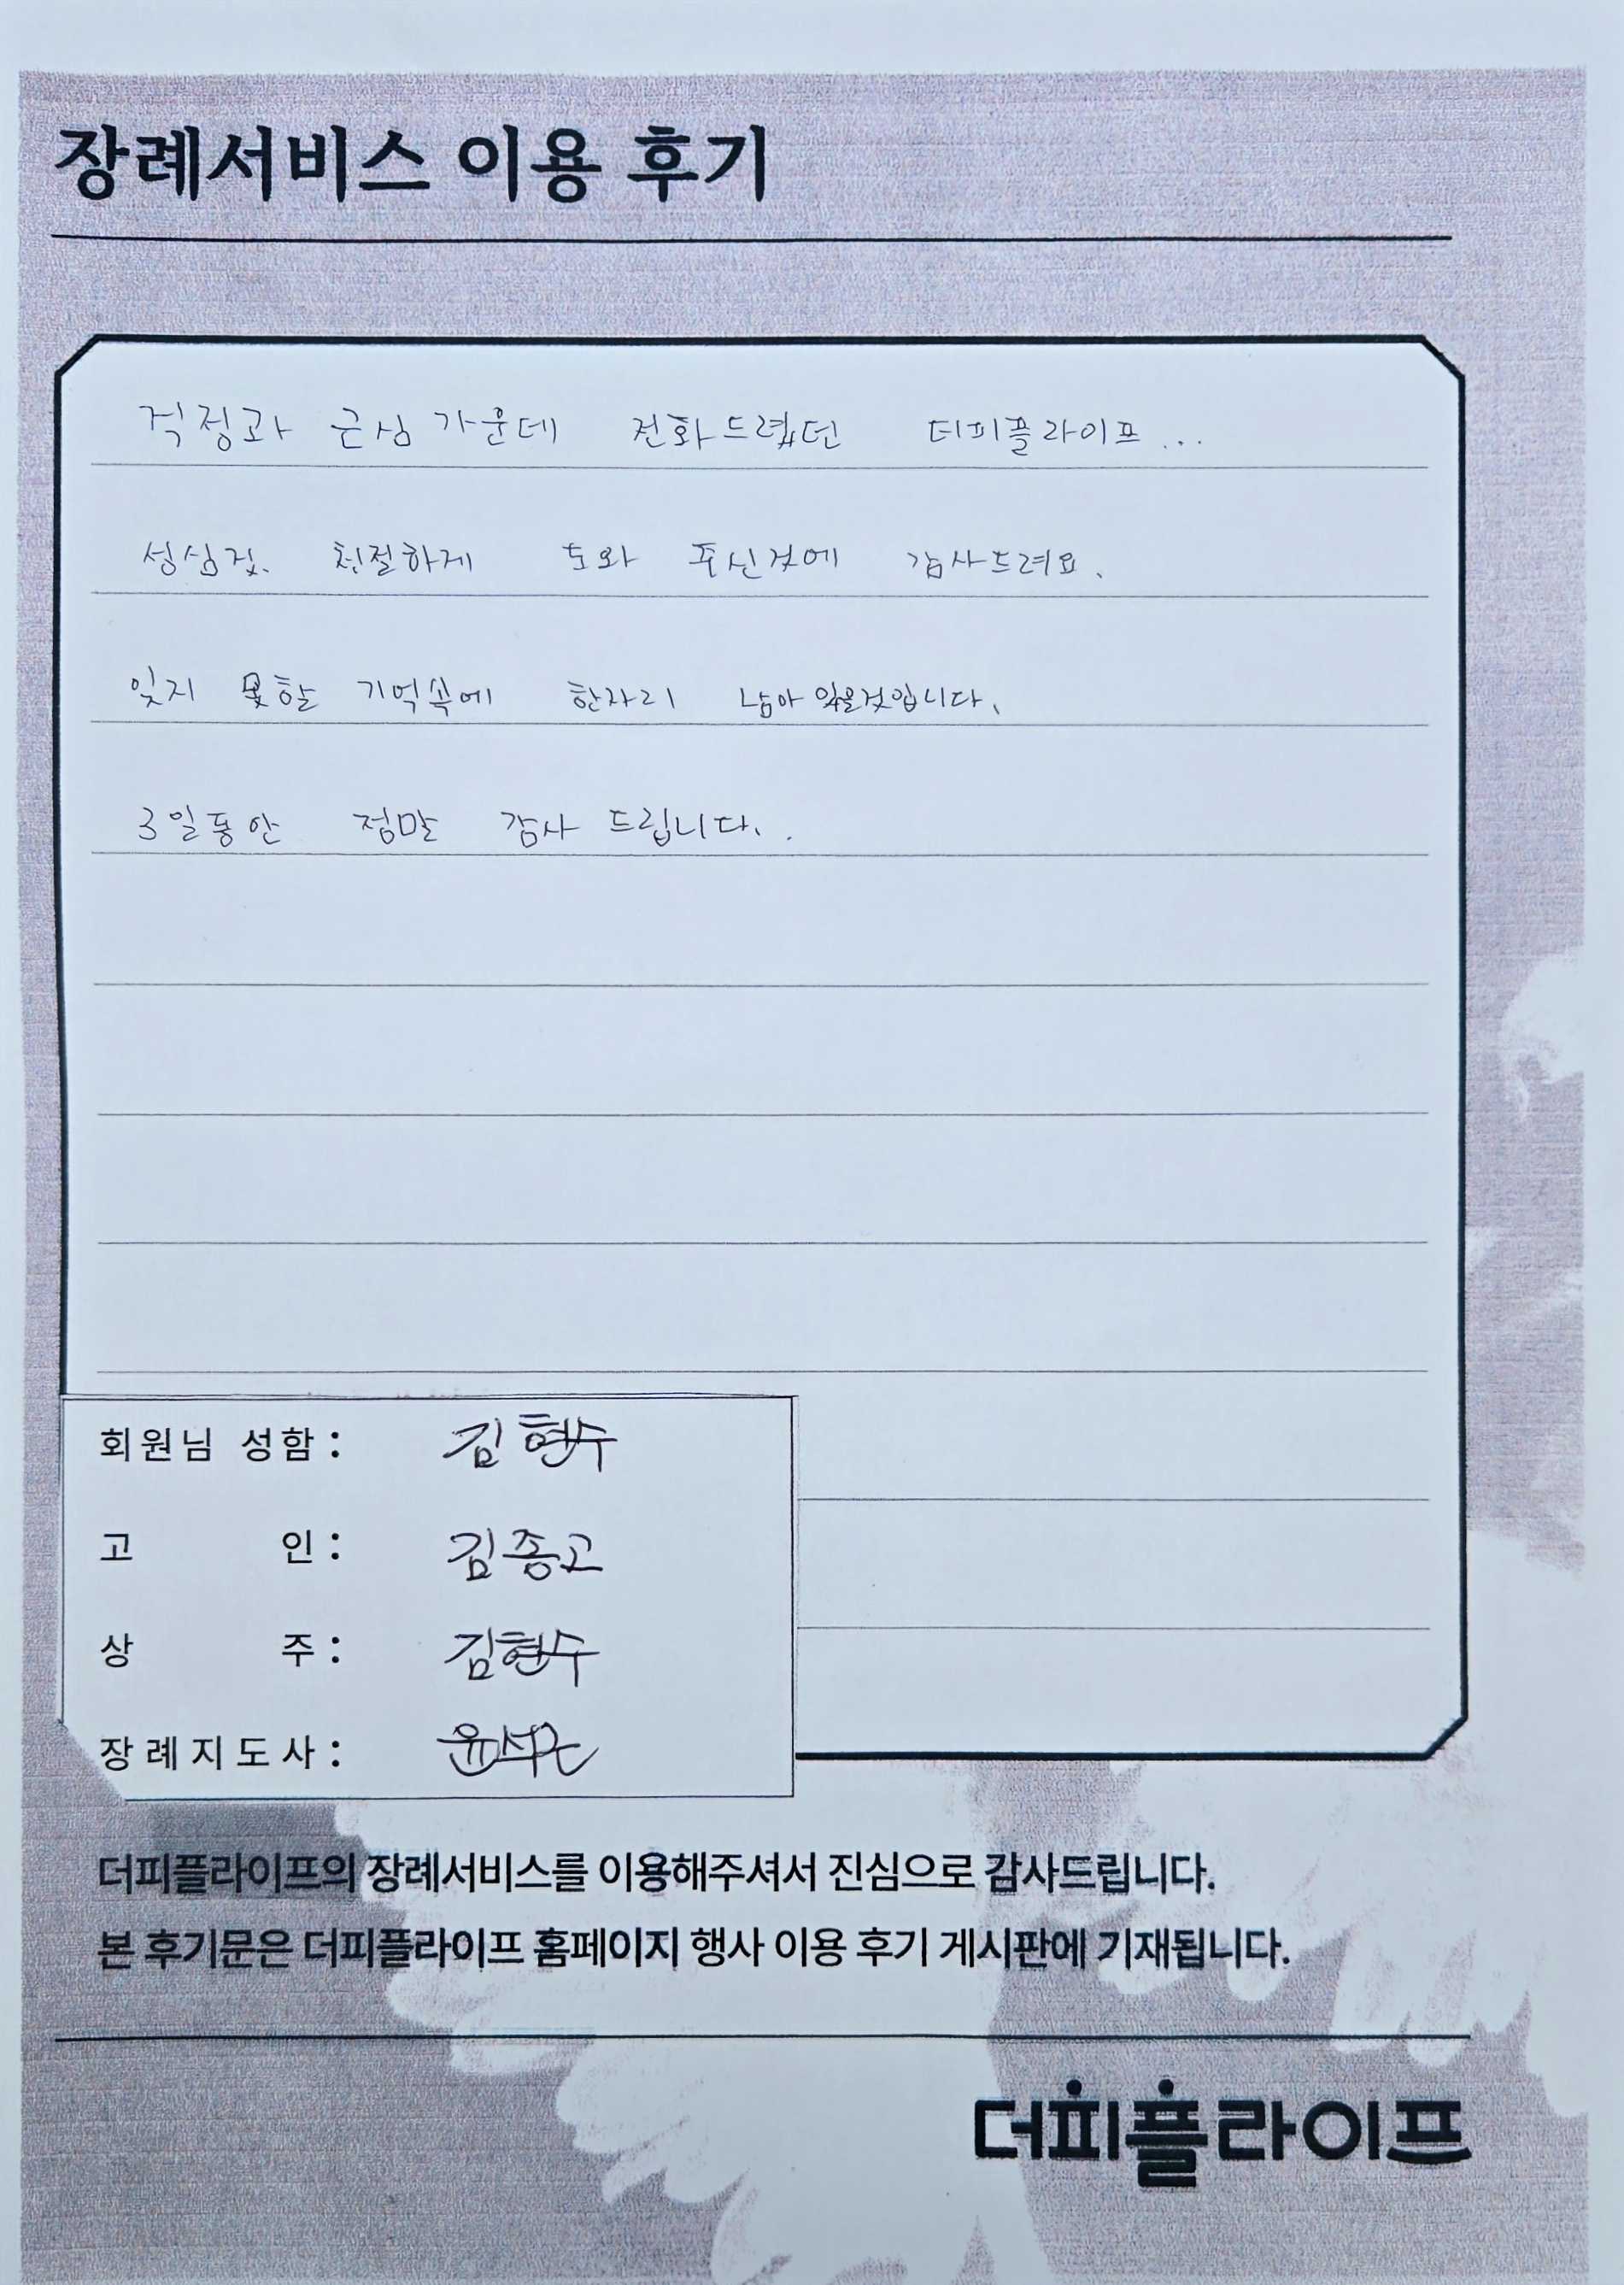 장례서비스 이용 후기
걱정과 근심 가운데 전화드렸던 더피플라이프...
성심것. 친절하게 도와 주신것에 감사드려요.
잊지 못할 기억속에 한자리 남아 있을것입니다.
3일동안 정말 감사 드립니다..
회원님 성함 : 김현수
고 인 : 김종고
상 주 : 김현수
장례지도사 :
더피플라이프의 장례서비스를 이용해주셔서 진심으로 감사드립니다.
본 후기문은 더피플라이프 홈페이지 행사 이용 후기 게시판에 기재됩니다.
더피플라이프